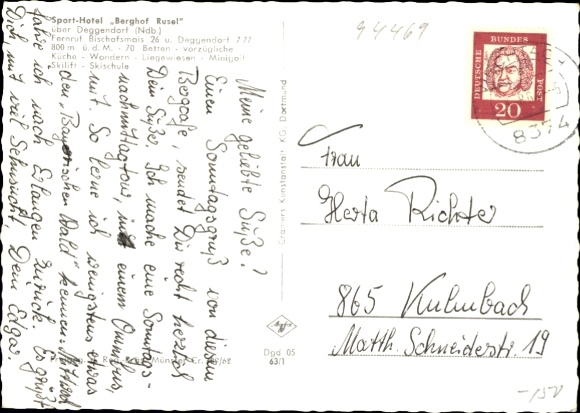 Sport-Hotel „Berghof Rusel"
über Deggendorf (Ndb.)
Fernruf Bischofsmais 26 u. Deggendorf 777
800 m ü. d. M. - 70 Betten - vorzügliche
Küche - Wandern - Liegewiesen - Minigolf
Skilift - Skischule
Meine geliebte Süße!
Einen Sonntagsgruß von dieser
Bergoase, sendet Dir recht herzlich
Dein Süßer. Ich mache eine Sonntags-
nachmittagstour, mit einem Omnibus,
mit. So lerne ich wenigstens etwas
den „Bayerischen Wald" kennen.
fahre ich nach Erlangen zurück. Es grüßt
Dich, mit viel Sehnsucht Dein Edgar.
94469
DEUTSCHE
BUNDES
POST
20
8374
Frau
Herta Richter
865 Kulmbach
Matth. Schneiderstr. 19
Dgd 05
63/1
-150